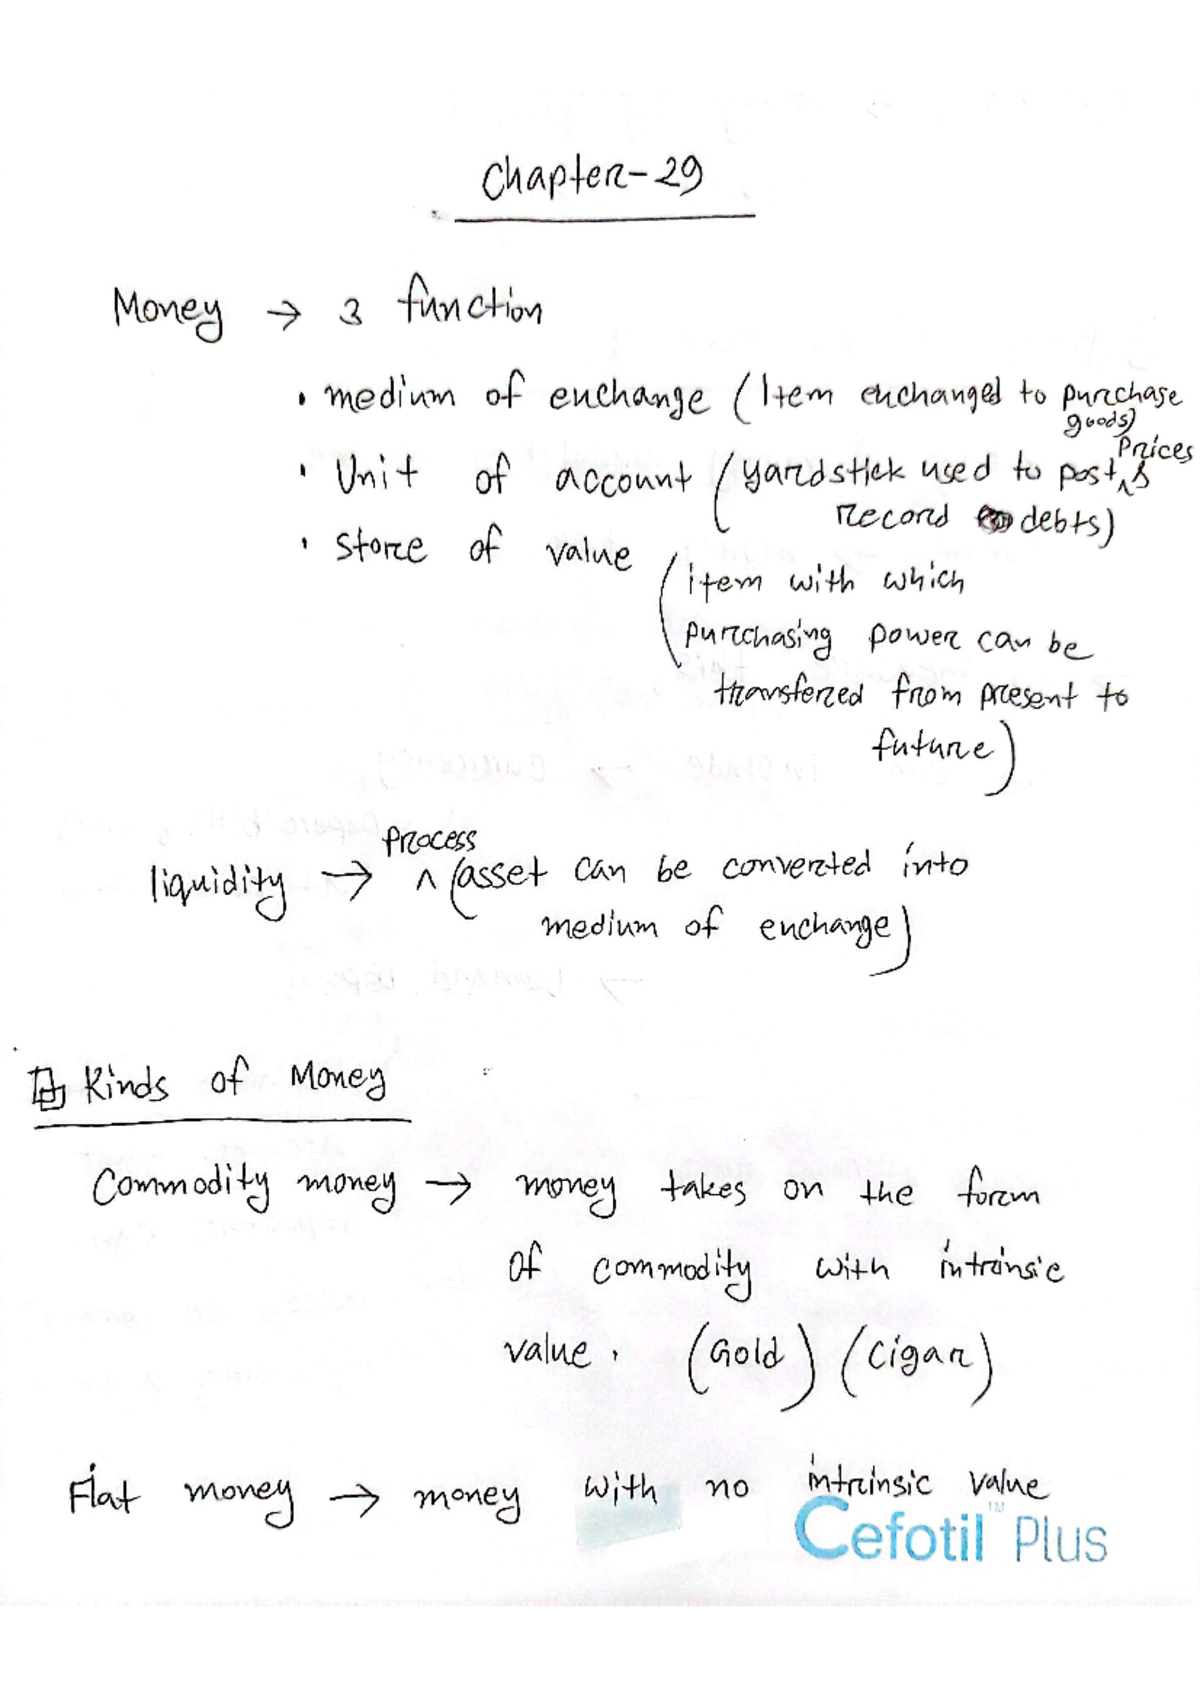 Chapter-29
Money → 3 function
• medium of exchange (Item exchanged to purchase
goods)
• Unit of account (yardstick used to post prices &
record debts)
• store of value
(item with which
purchasing power can be
transferred from present to
future)
liquidity → process (asset can be converted into
medium of exchange)
Kinds of Money
Commodity money → money takes on the form
of commodity with intrinsic
value. (Gold) (Cigar)
Fiat money → money with no intrinsic value
Cefotil™ Plus